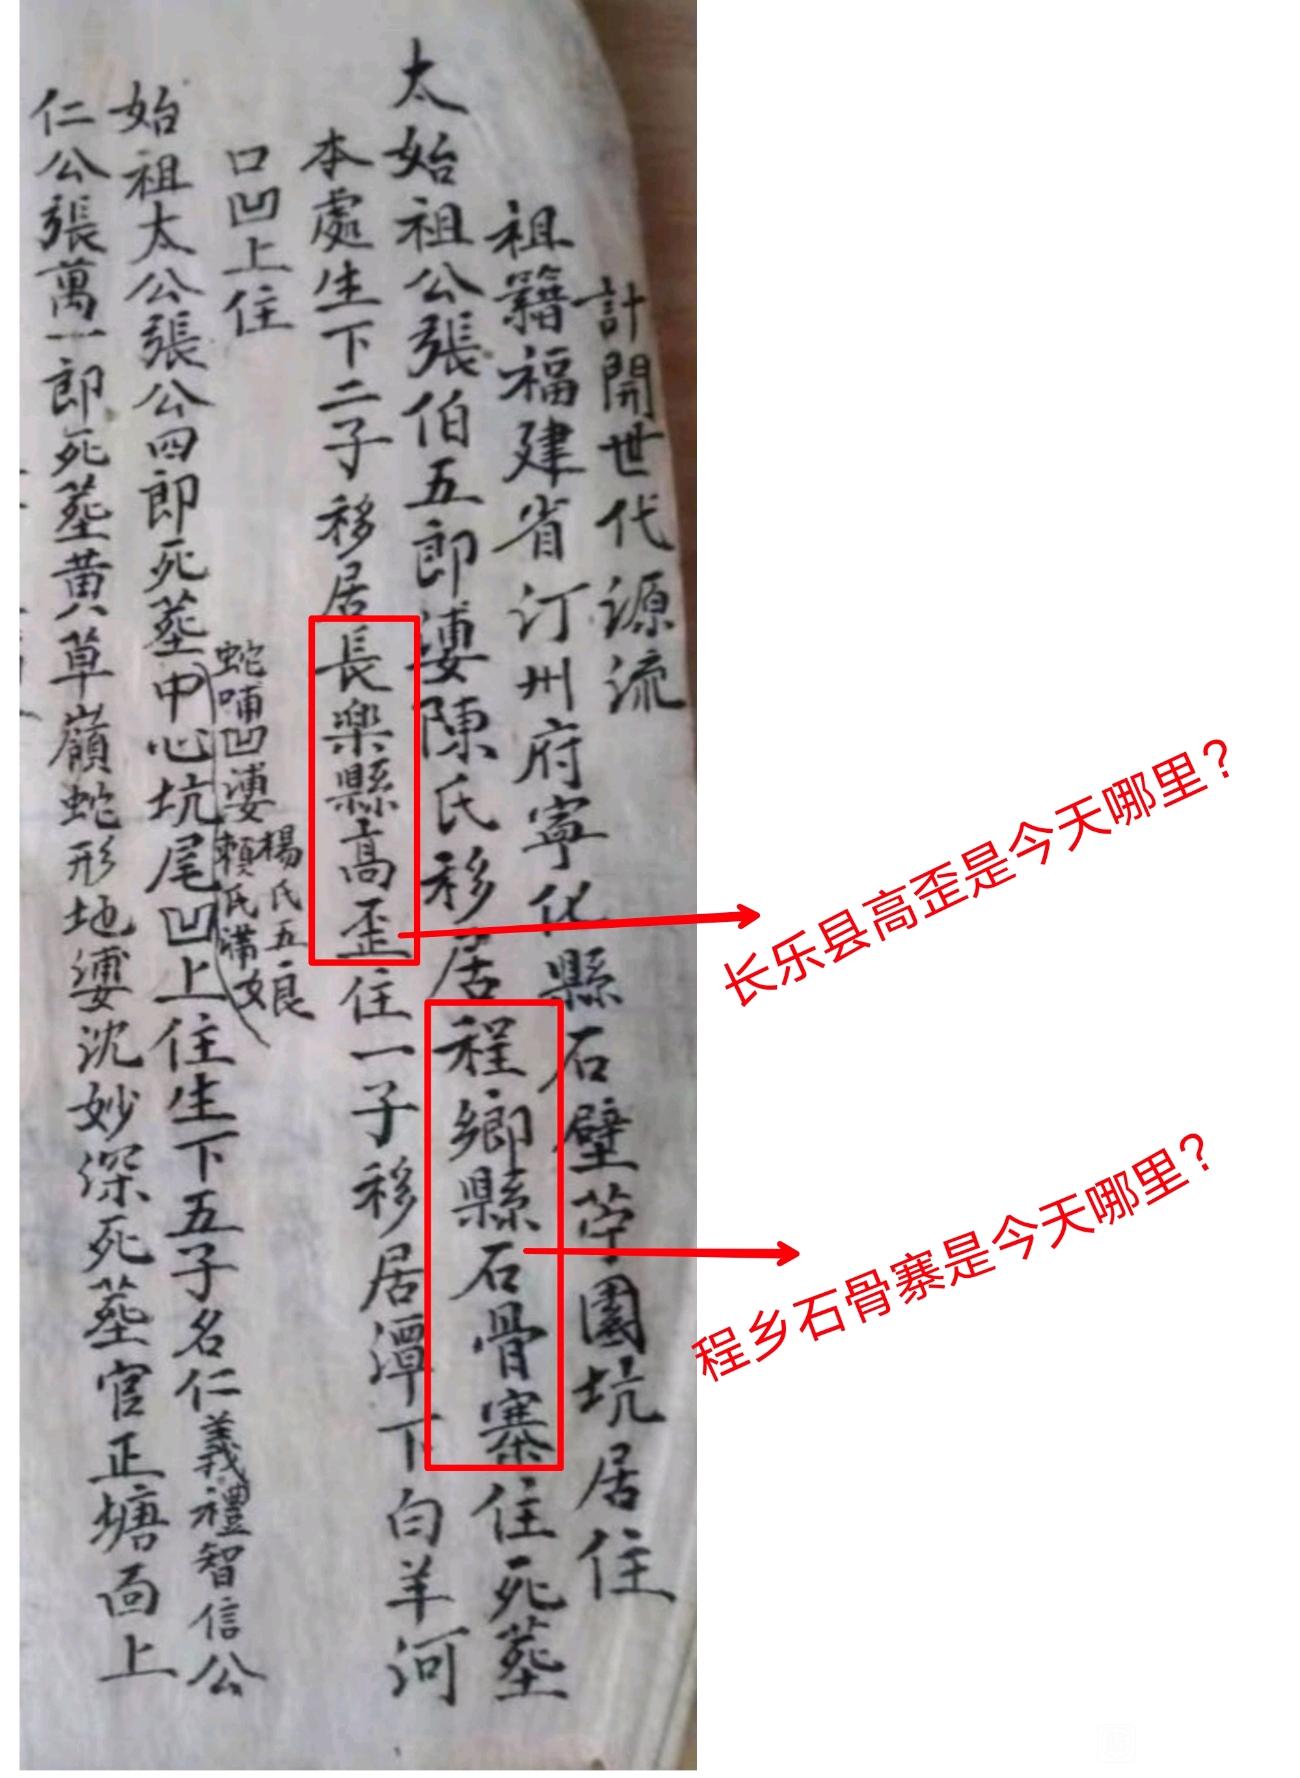 計開世代源流
祖籍福建省汀州府寧化縣石壁苧園坑居住
太始祖公張伯五郎妻陳氏移居程鄉縣石骨寨住死塟
本處生下二子移居長樂縣高歪住一子移居潭下白羊河
口凹上住
蛇哺凹妻楊氏五娘
賴氏滿娘
始祖太公張公四郎死塟中心坑尾凹上住生下五子名仁義禮智信公
仁公張萬一郎死塟黄草嶺蛇形地妻沈妙深死塟官正塘面上
长乐县高歪是今天哪里？
程乡石骨寨是今天哪里？